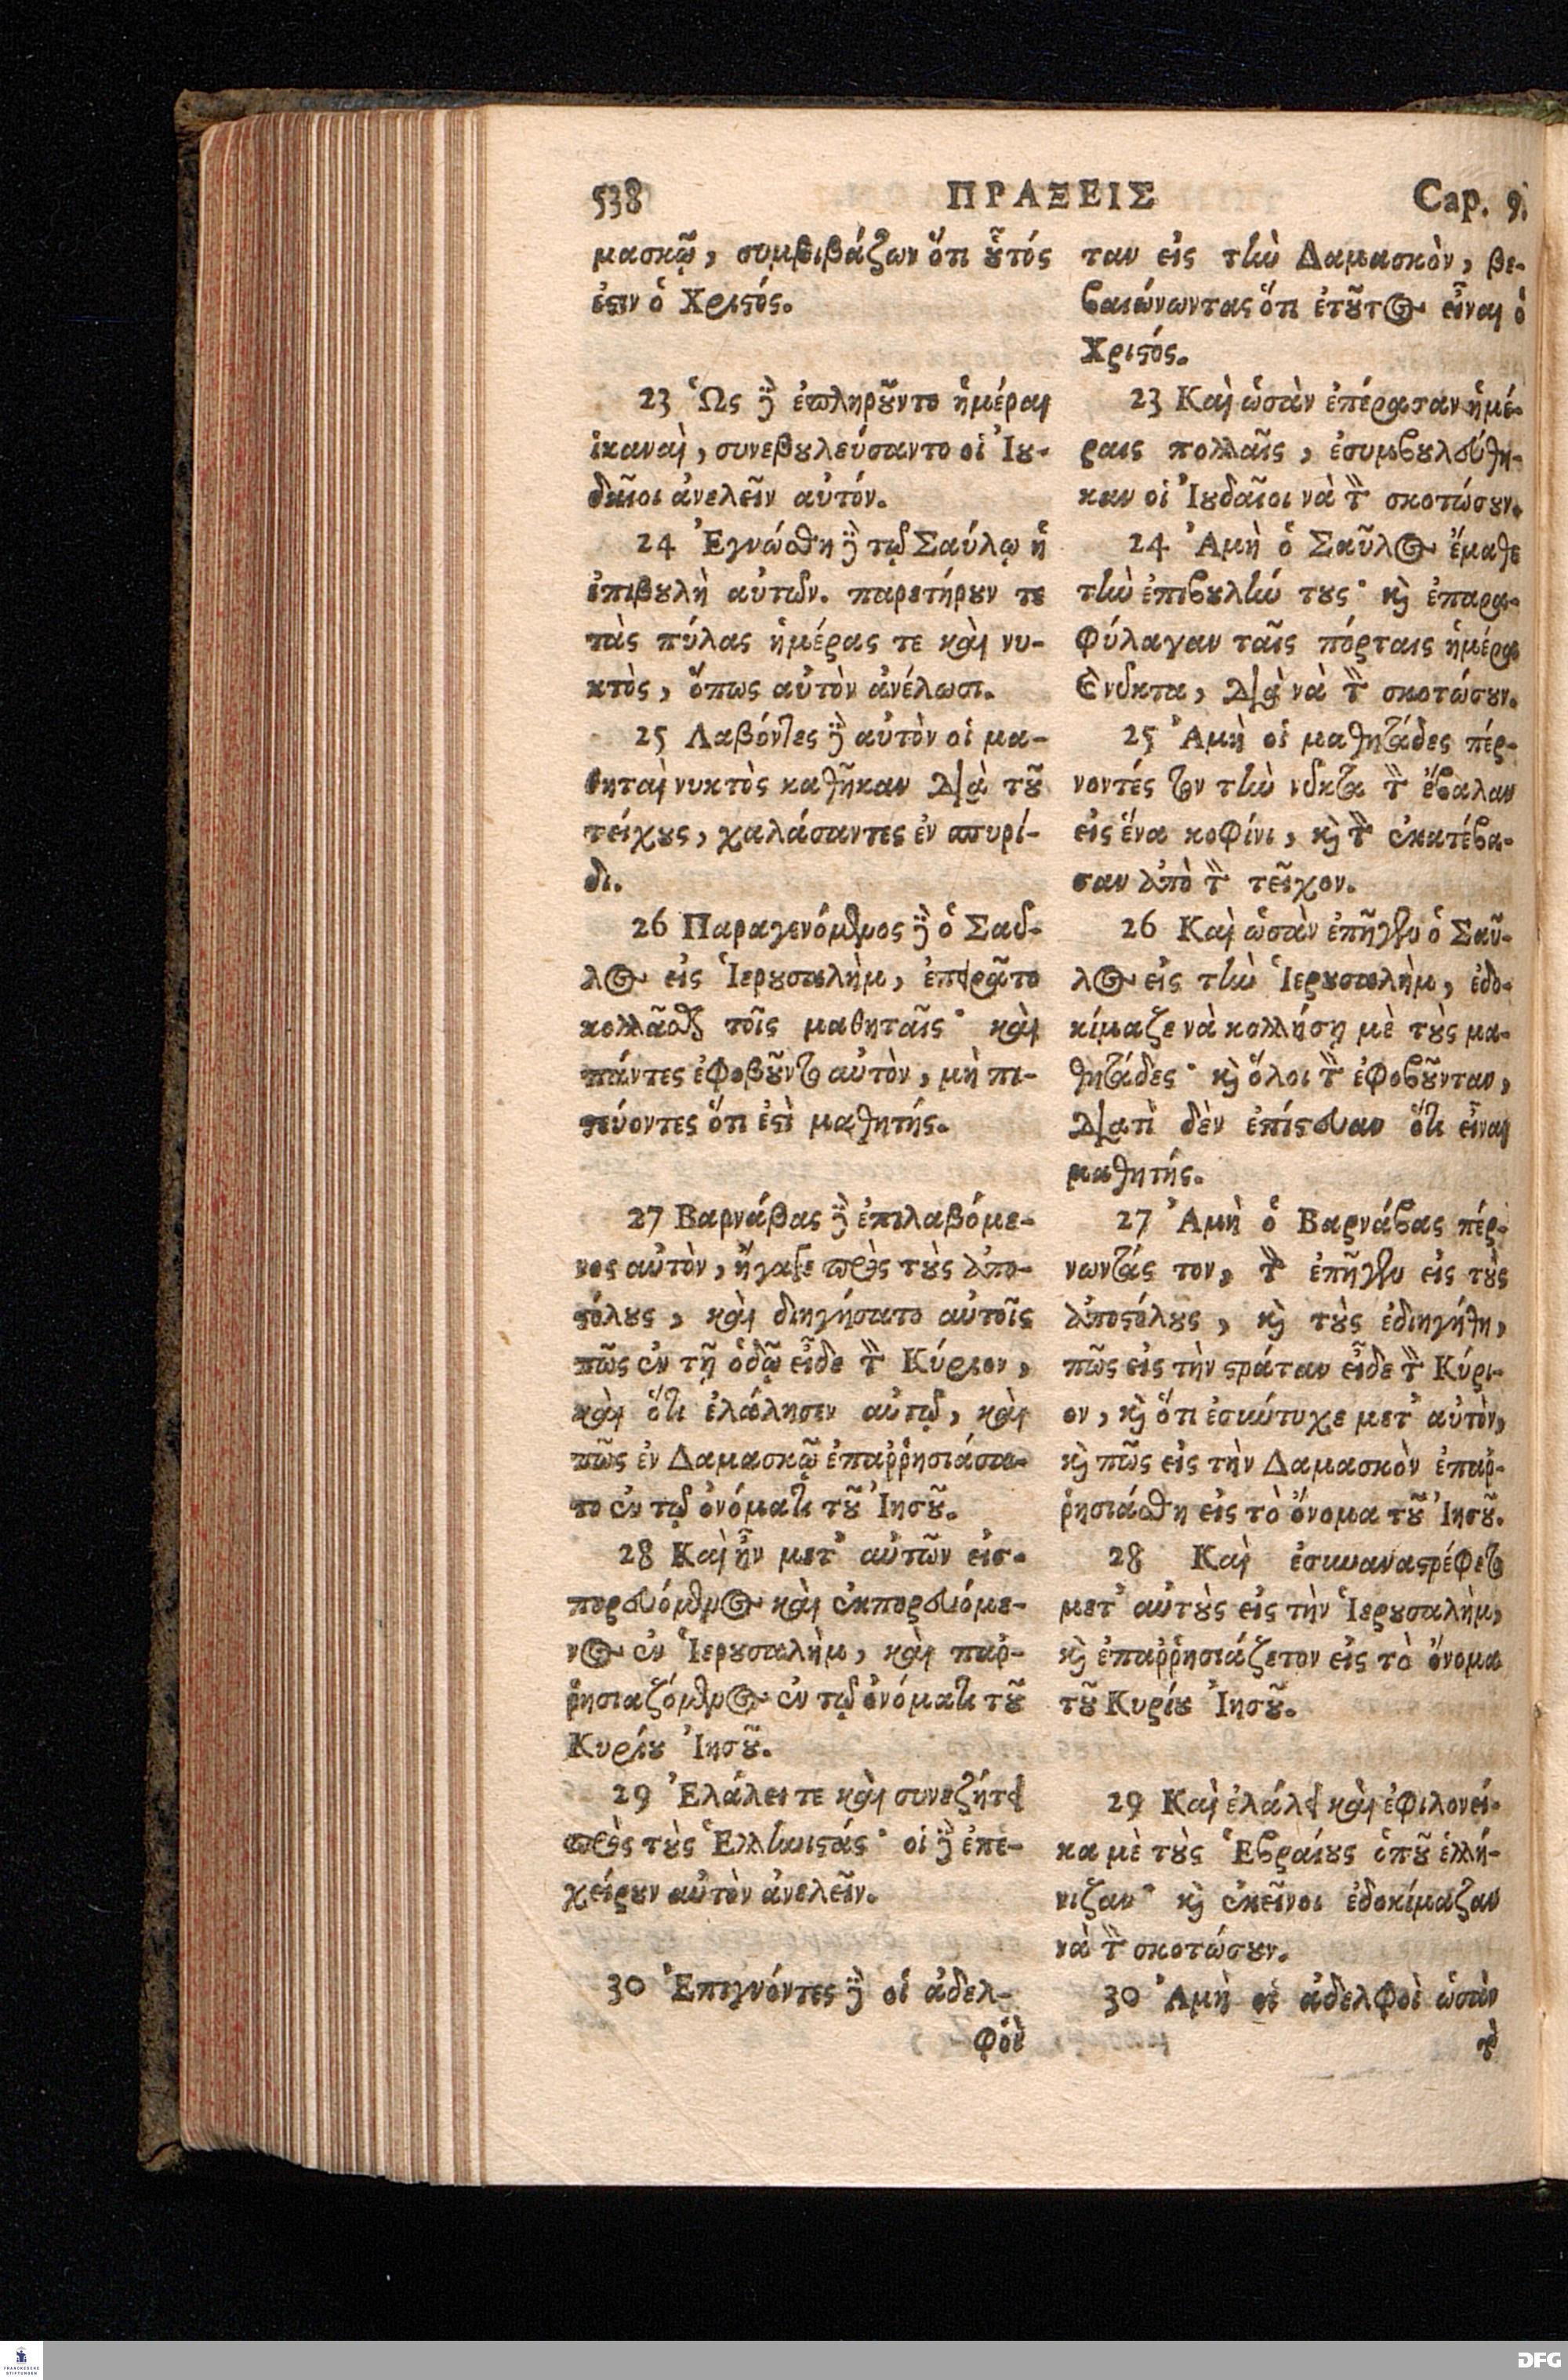 538
ΠΡΑΞΕΙΣ
Cap. 9.
μασκῷ, συμβιβάζων ὅτι ȣ̃τός
ἐϛιν ὁ Χριϛός.
23 Ὡς δὲ ἐπληρȣ̃ντο ἡμέραι
ἱκαναὶ, συνεβȣλεύσαντο οἱ Ἰȣ-
δαῖοι ἀνελεῖν αὐτόν.
24 Ἐγνώσθη δὲ τῷ Σαύλῳ ἡ
ἐπιβȣλὴ αὐτῶν. παρετήρȣν τε
τὰς πύλας ἡμέρας τε καὶ νυ-
κτὸς, ὅπως αὐτὸν ἀνέλωσι.
25 Λαβόντες δὲ αὐτὸν οἱ μα-
θηταὶ νυκτὸς καθῆκαν διὰ τȣ̃
τείχȣς, χαλάσαντες ἐν σπυρί-
δι.
26 Παραγενόμενος δὲ ὁ Σαῦ-
λος εἰς Ἱερȣσαλὴμ, ἐπειρᾶτο
κολλᾶσθαι τοῖς μαθηταῖς· καὶ
πάντες ἐφοβȣ̃ντο αὐτὸν, μὴ πι-
ϛεύοντες ὅτι ἐϛὶ μαθητής.
27 Βαρνάβας δὲ ἐπιλαβόμε-
νος αὐτὸν, ἤγαγε πρὸς τȣ̀ς ἀπο-
ϛόλȣς, καὶ διηγήσατο αὐτοῖς
πῶς ἐν τῇ ὁδῷ εἶδε τὸν Κύριον,
καὶ ὅτι ἐλάλησεν αὐτῷ, καὶ
πῶς ἐν Δαμασκῷ ἐπαῤῥησιάσα-
το ἐν τῷ ὀνόματι τȣ̃ Ἰησȣ̃.
28 Καὶ ἦν μετ' αὐτῶν εἰσ-
πορευόμενος καὶ ἐκπορευόμε-
νος ἐν Ἱερȣσαλὴμ, καὶ παῤ-
ῥησιαζόμενος ἐν τῷ ὀνόματι τȣ̃
Κυρίȣ Ἰησȣ̃.
29 Ἐλάλει τε καὶ συνεζήτει
πρὸς τȣ̀ς Ἑλληνιϛάς· οἱ δὲ ἐπε-
χείρȣν αὐτὸν ἀνελεῖν.
30 Ἐπιγνόντες δὲ οἱ ἀδελ-
φοὶ
ταν εἰς τὴν Δαμασκὸν, βε-
βαιώνωντας ὅτι ἐτȣ̃τος εἶναι ὁ
Χριϛός.
23 Καὶ ὡσὰν ἐπέρασαν ἡμέ-
ραις πολλαῖς, ἐσυμβȣλεύθη-
καν οἱ Ἰȣδαῖοι νὰ τὸν σκοτώσȣν.
24 Ἀμὴ ὁ Σαῦλος ἔμαθε
τὴν ἐπιβȣλήν τȣς· κὶ ἐπαρα-
φύλαγαν ταῖς πόρταις ἡμέρα
καὶ νύκτα, διὰ νὰ τὸν σκοτώσȣν.
25 Ἀμὴ οἱ μαθητάδες πέρ-
νοντές τον τὴν νύκτα τὸν ἔβαλαν
εἰς ἕνα κοφίνι, κὶ τὸν ἐκατέβα-
σαν ἀπὸ τὸν τεῖχον.
26 Καὶ ὡσὰν ἐπῆγεν ὁ Σαῦ-
λος εἰς τὴν Ἱερȣσαλὴμ, ἐδο-
κίμαζε νὰ κολλήσῃ μὲ τȣ̀ς μα-
θητάδες· κὶ ὅλοι τὸν ἐφοβȣ̃νταν,
διατὶ δὲν ἐπίϛευαν ὅτι εἶναι
μαθητής.
27 Ἀμὴ ὁ Βαρνάβας πέρ-
νωντάς τον, τὸν ἐπῆγεν εἰς τȣ̀ς
ἀποϛόλȣς, κὶ τȣ̀ς ἐδιηγήθη,
πῶς εἰς τὴν ϛράταν εἶδε τὸν Κύρι-
ον, κὶ ὅτι ἐσυνώτυχε μετ' αὐτὸν,
κὶ πῶς εἰς τὴν Δαμασκὸν ἐπαῤ-
ῥησιάσθη εἰς τὸ ὄνομα τȣ̃ Ἰησȣ̃.
28 Καὶ ἐσυναναϛρέφετο
μετ' αὐτȣ̀ς εἰς τὴν Ἱερȣσαλὴμ,
κὶ ἐπαῤῥησιάζετον εἰς τὸ ὄνομα
τȣ̃ Κυρίȣ Ἰησȣ̃.
29 Καὶ ἐλάλει καὶ ἐφιλονεί-
κα μὲ τȣ̀ς Ἑβραίȣς ὁπȣ̃ ἑλλή-
νιζαν· κὶ ἐκεῖνοι ἐδοκίμαζαν
νὰ τὸν σκοτώσȣν.
30 Ἀμὴ οἱ ἀδελφοὶ ὡσὰν
τὸ
FRANCKESCHE
STIFTUNGEN
DFG